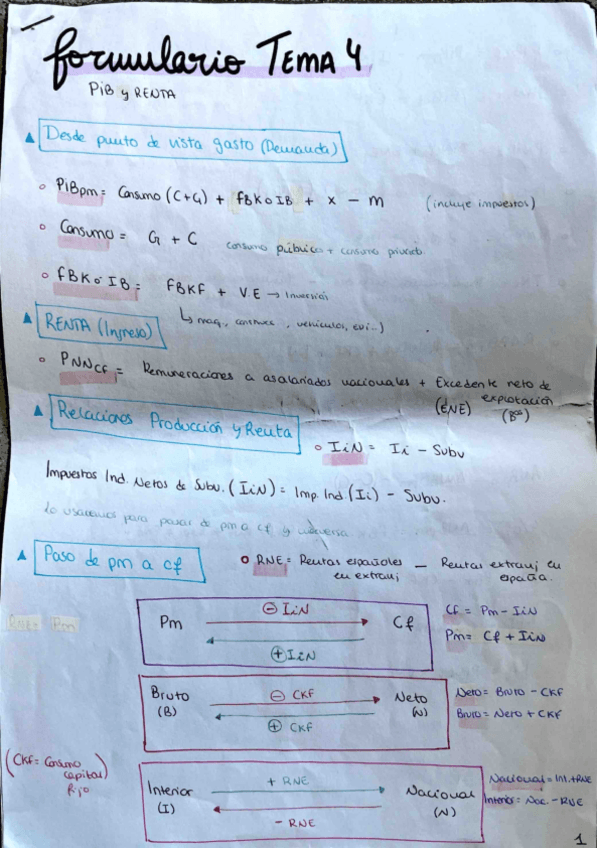 formulario TEMA 4
PiB y RENTA
Desde punto de vista gasto (Demanda)
PiBpm = Consumo (C+G) + fBK o IB + x - m (incluye impuestos)
Consumo = G + C consumo público + consumo privado
fBK o IB = FBKF + V.E → Inversión
↳ maq., , vehículos,
RENTA (Ingreso)
PNNcf = Remuneraciones a asalariados nacionales + Excedente neto de
explotación
(ENE) (Bº)
Relaciones Producción y Renta
IiN = Ii - Subv
Impuestos Ind. Netos de Subv. (IiN) = Imp. Ind. (Ii) - Subv.
Lo usaremos para pasar de pm a cf y viceversa
Paso de pm a cf
RNE = Rentas españoles - Rentas extranj en
en extranj españa.
Pm ⊖ IiN Cf
⊕ IiN
Cf = Pm - IiN
Pm = Cf + IiN
Pm
Bruto ⊖ CKF Neto
(B) ⊕ CKF (N)
Neto = Bruto - CKF
Bruto = Neto + CKF
(CKF = Consumo
capital
Fijo)
Interior + RNE Nacional
(I) - RNE (N)
Nacional = Int. + RNE
Interior = Nac. - RNE
1